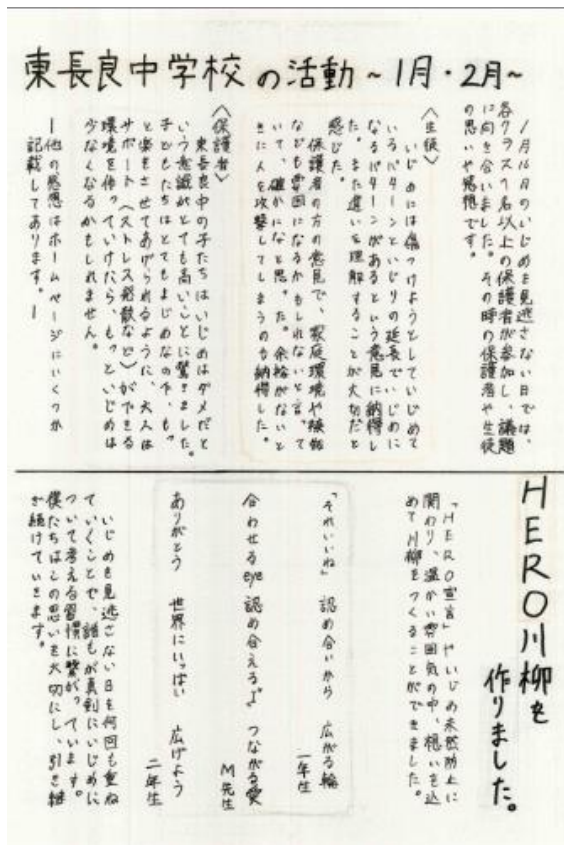 東長良中学校の活動~1月・2月~
1月16日のいじめを見逃さない日では、
各クラス1名以上の保護者が参加し、議題
に向き合いました。その時の保護者や生徒
の思いや感想です。
〈生徒〉
いじめには傷つけようとしていじめて
いるパターンといじりの延長でいじめに
なるパターンがあるという意見に納得し
た。また違いを理解することが大切だと
感じた。
保護者の方の意見で、家庭環境や挨拶
なども要因になるかもしれないと言って
いて、確かになと思った。余裕がないと
きに人を攻撃してしまうのも納得した。
〈保護者〉
東長良中の子たちはいじめはダメだと
いう意識がとても高いことに驚きました。
子どもたちはとてもまじめなので、もっ
と楽をさせてあげられるように、大人は
サポート(ストレス発散など)ができる
環境を作っていけたら、もっといじめは
少なくなるかもしれません。
ー他の感想はホームページにいくつか
記載してあります。ー
HERO川柳を
作りました。
「HERO宣言」やいじめ未然防止に
関わり、温かい雰囲気の中、想いを込
めて川柳をつくることができました。
「それいいね」 認め合いから 広がる輪
一年生
合わせるeye 認め合える "よさ" つながる愛
M先生
ありがとう 世界にいっぱい 広げよう
二年生
いじめを見逃さない日を何回も重ね
ていくことで、誰もが真剣にいじめに
ついて考える習慣に繋がっています。
僕たちはこの思いを大切にし、引き継
ぎ続けていきます。